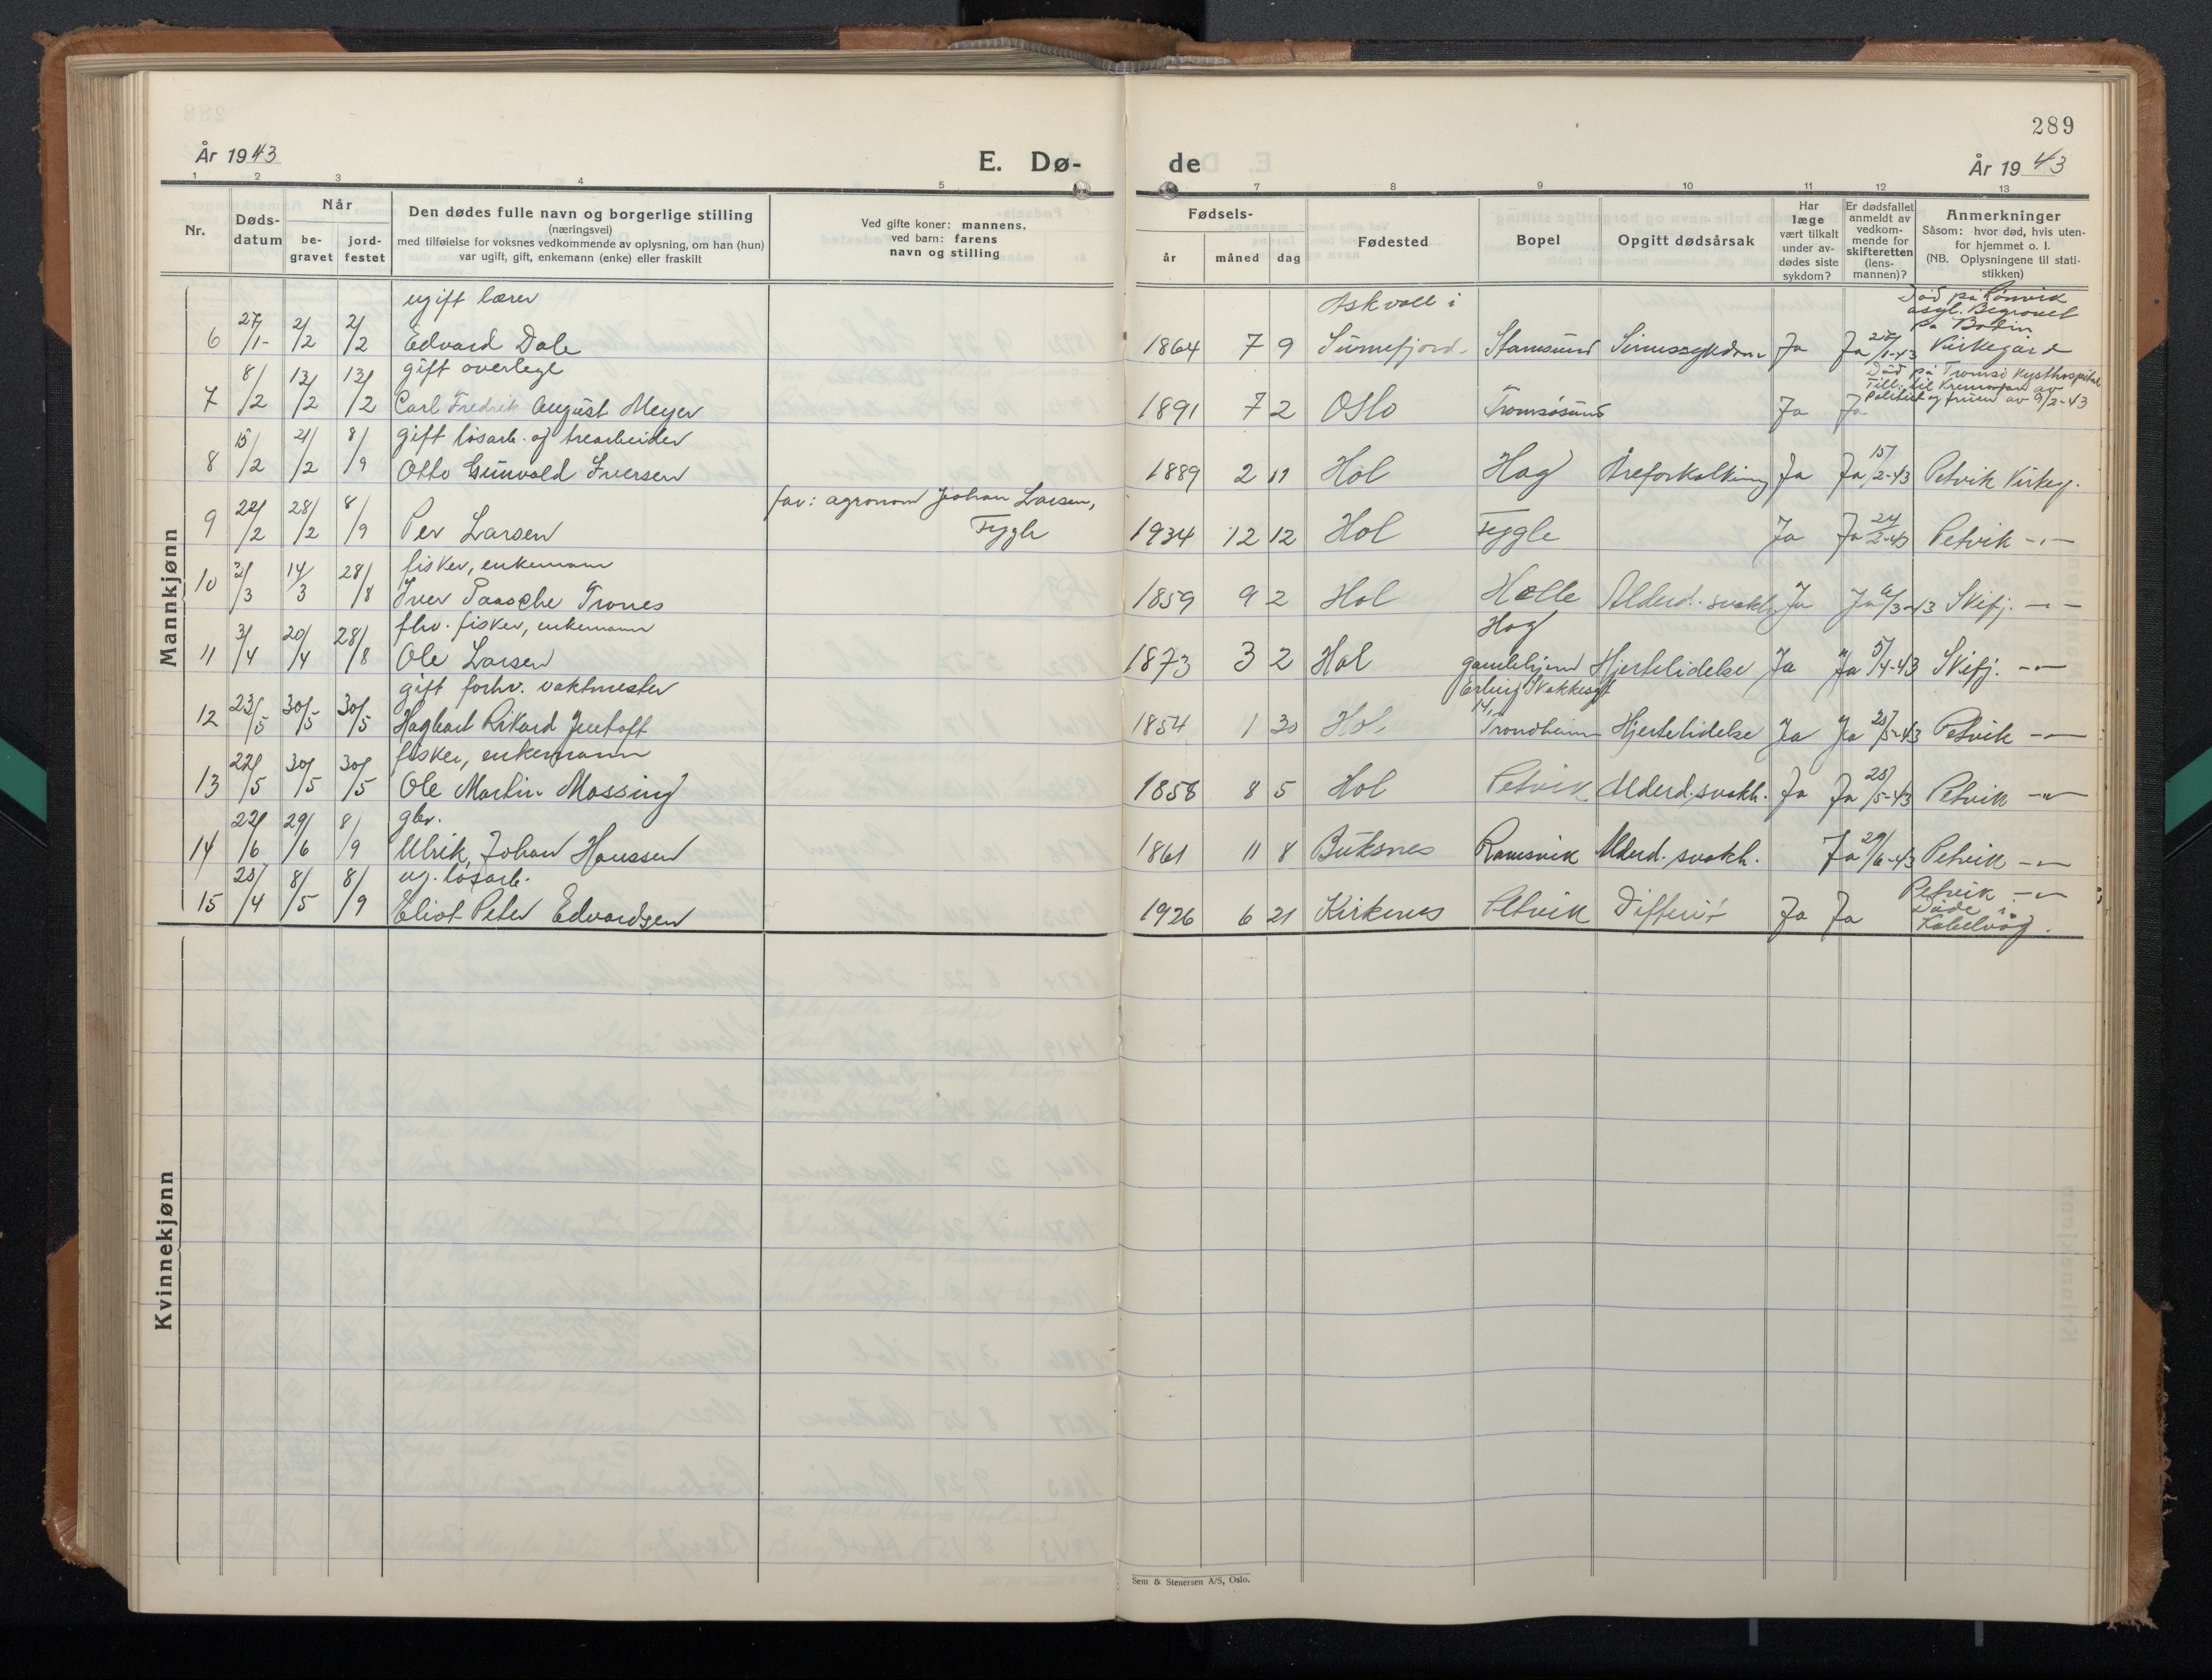 289
År 1943
E. Dø-
de
År 1943
1 2 3 4 5 7 8 9 10 11 12 13
Nr.
Døds-
datum
Når
be-
gravet
jord-
festet
Den dødes fulle navn og borgerlige stilling
(næringsvei)
med tilføielse for voksnes vedkommende av oplysning, om han (hun)
var ugift, gift, enkemann (enke) eller fraskilt
Ved gifte koner: mannens,
ved barn: farens
navn og stilling
Fødsels-
år måned dag
Fødested
Bopel
Opgitt dødsårsak
Har
læge
vært tilkalt
under av-
dødes siste
sykdom?
Er dødsfallet
anmeldt av
vedkom-
mende for
skifteretten
(lens-
mannen)?
Anmerkninger
Såsom: hvor død, hvis uten-
for hjemmet o. l.
(NB. Oplysningene til stati-
stikken)
Mannkjønn
ugift lærer Askvoll i Død på Rønvik
asyl. Begravet
på Bodin
6 27/1- 2/2 2/2 Edvard Dale 1864 7 9 Sunnefjord Stamsund Sinnssykdom Ja Ja 1-43 Kirkegård
gift overlege Død på Tromsø Kysthospital
Till. til av
Politiet og fruen av 9/2-43
7 8/2 13/2 13/2 Carl Fredrik August Meyer 1891 7 2 Oslo Tromsøsund Ja Ja
gift løsarb. og trearbeider
8 15/2 21/2 8/9 Otto Gunvald Iversen 1889 2 11 Hol Hag Åreforkalkning Ja Ja 15/2-43 Petvik Kirkeg.
far: agronom Johan Larsen,
9 22/2 28/2 8/9 Per Larsen Fygle 1934 12 12 Hol Fygle Ja Ja 24/2-43 Petvik -"-
fisker, enkemann
10 3/3 14/3 28/8 Iver Paasche Trones 1859 9 2 Hol Helle Alderd. svakh. Ja Ja 6/3-43 Skifj. -"-
fhv. fisker, enkemann Hag
11 3/4 20/4 28/8 Ole Larsen 1873 3 2 Hol gamlehjem Hjertelidelse Ja Ja 5/4-43 Skifj. -"-
gift forhv. vaktmester Erling Skakkesgt
14,
12 23/5 30/5 30/5 Hagbart Rikard Jentoft 1854 1 30 Hol Trondheim Hjertelidelse Ja Ja 25/5-43 Petvik -"-
fisker, enkemann
13 22/5 30/5 30/5 Ole Martin Massing 1858 8 5 Hol Petvik Alderd. svakh. Ja Ja 25/5-43 Petvik -"-
gbr.
14 22/6 29/6 8/9 Ulrik Johan Hanssen 1861 11 8 Buksnes Ramsvik Alderd. svakh. Ja 29/6-43 Petvik -"-
ug. løsarb. Petvik -"-
Døde i
15 4 8/5 8/9 Eliot Peter Edvardsen 1926 6 21 Kirkenes Petvik Difteri Ja Ja Kabelvåg.
Kvinnekjønn
Sem & Stenersen A/S, Oslo.